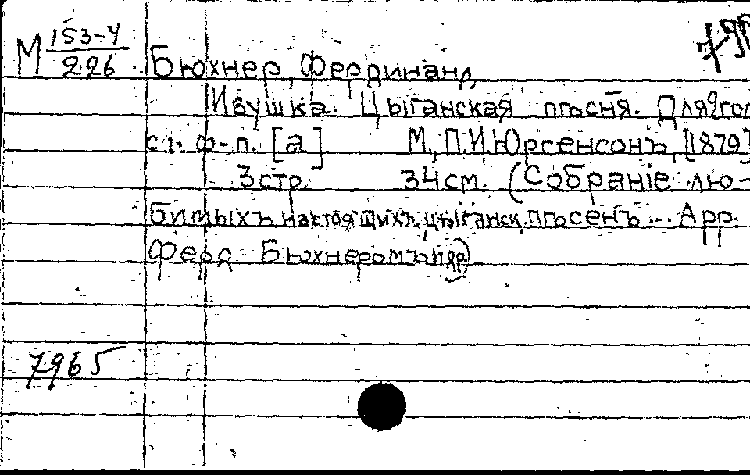 М 153-4
226
Бюхнер, Фердинанд
Ивушка. Цыганская пѣсня. Для 2 гол
ст. ф-п. [а] М., П.И. Юргенсонъ, [1879]
3 стр. 34 см. (Собраніе лю-
бимыхъ настоящихъ цыганск. пѣсенъ... Арр.
Ферд. Бюхнеромъ
7965